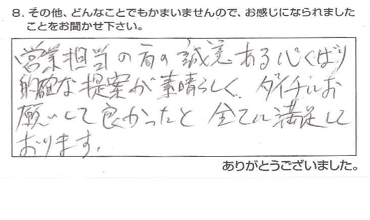 8. その他、どんなことでもかまいませんので、お感じになられました
ことをお聞かせ下さい。
営業担当の方の誠意ある心くばり
的確な提案が素晴らしく、ダイチにお
願いして良かったと全てに満足して
おります。
ありがとうございました。